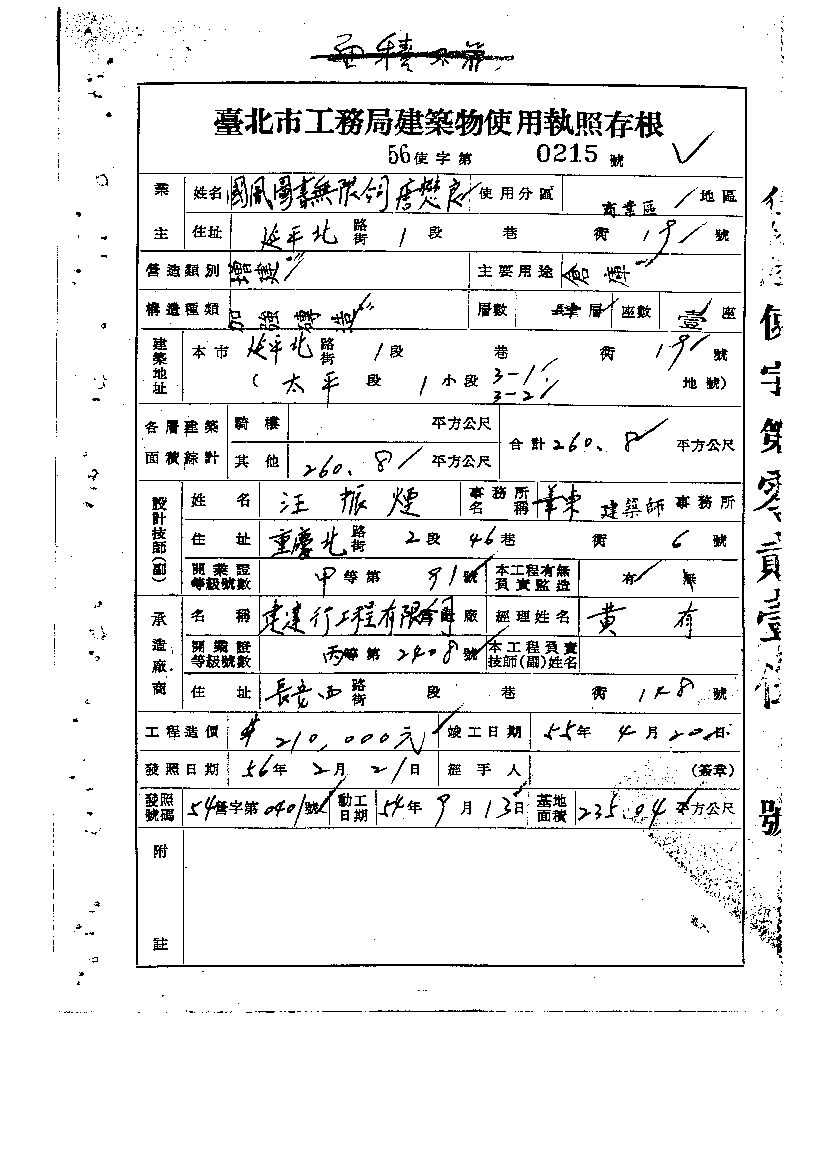 臺北市工務局建築物使用執照存根
56使字第 0215 號
業主 姓名 國風圖書無限公司唐懋良 使用分區 商業區 地區
住址 延平北 路街 1 段 巷 街 號
營造類別 增建 主要用途 倉庫
構造種類 加強磚造 層數 層 座數 壹 座
建築地址 本市 延平北 路街 1 段 巷 街 號
(太平 段 1 小段 3-1 3-2 地號)
各層建築面積綜計 騎樓 平方公尺 合計 260.8 平方公尺
其他 260.8 平方公尺
設計技師(副) 姓名 汪振煙 事務所名稱 華東 建築師 事務所
住址 重慶北 路街 2 段 46 巷 街 6 號
開業證等級號數 甲 等第 號 本工程有無負責監造 有 無
承造廠商 名稱 建達行工程有限公司 廠 經理姓名 黃有
開業證等級號數 丙 等第 2408 號 本工程負責技師(副)姓名
住址 長安西 路街 段 巷 街 號
工程造價 210,000元 竣工日期 55年 4月 20日
發照日期 56年 2月 21日 經手人 (簽章)
發照號碼 54營字第0401號 動工日期 54年 9月 13日 基地面積 235.04 平方公尺
附註
使字第零貳壹伍號